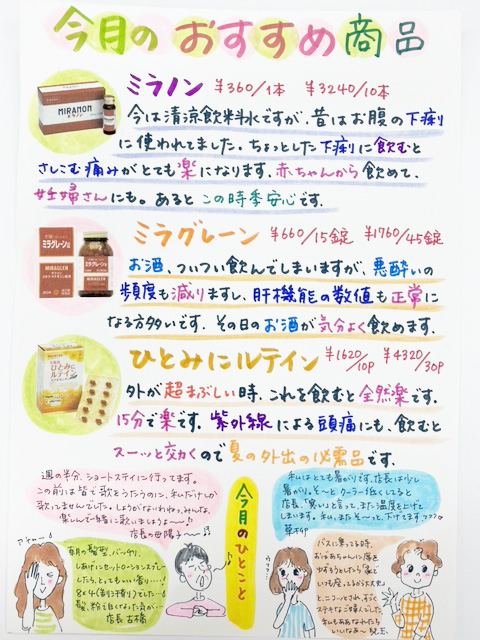 今月のおすすめ商品
ミラノン ¥360/1本 ¥3240/10本
MIRANON
ミラノン
今は清涼飲料水ですが、昔はお腹の下痢
に使われてました。ちょっとした下痢に飲むと
さしこむ痛みがとても楽になります。赤ちゃんから飲めて、
妊婦さんにも。あるとこの時季安心です。
ミラグレーン ¥660/15錠 ¥1760/45錠
ミラグレーン
MIRAGLEN
お酒、ついつい飲んでしまいますが、悪酔いの
頻度も減りますし、肝機能の数値も正常に
なる方多いです。その日のお酒が気分よく飲めます。
ひとみにルテイン ¥1620/10P ¥4320/30P
ひとみに
ルテイン
外が超まぶしい時、これを飲むと全然楽です。
15分で楽です。紫外線による頭痛にも、飲むと
スーッと効くので夏の外出の必需品です。
今月のひとこと
週の半分、ショートステイに行ってます。
この前は皆で歌をうたうのに、私だけしか
歌ってませんでした。しょうがないわねっ、みんな、
楽しんで一緒に歌いましょうよ〜
店長の母 陽子
アチャー!
朝の髪型、バッチリ。
しあげにセットローションスプレー
したら、とってもいい香り…!
8×4(制汗剤)でした…
髪、粉っぽくなった
店長 古橋
私はとても暑がりです。店長は少し
暑がり。そ〜とクーラー低くしてると
店長、「寒い」と言って、また温度を上げて
しまいます。私、またそ〜っと下げてます
草抑
バスに乗ってる時、
おばあちゃんに席を
出ようとしたら
いつも座ってるから大丈夫
と、ニコッとされ、すごく
ステキなご婦人でした。
私もああなれたら
いいなあ〜